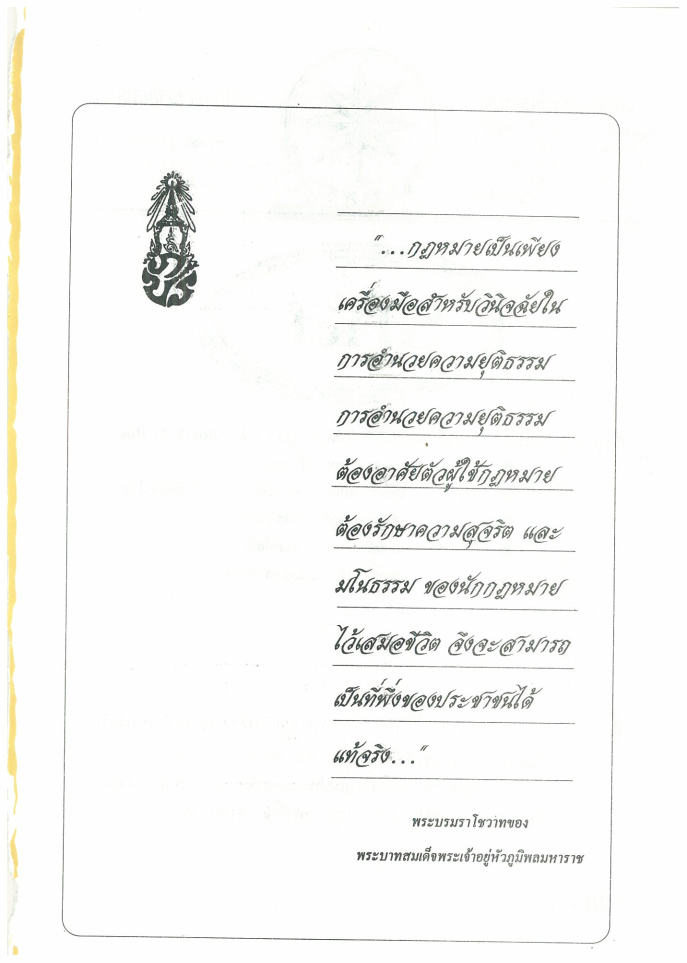 "...กฎหมายเป็นเพียง
เครื่องมือสำหรับวินิจฉัยใน
การอำนวยความยุติธรรม
การอำนวยความยุติธรรม
ต้องอาศัยตัวผู้ใช้กฎหมาย
ต้องรักษาความสุจริต และ
มโนธรรม ของนักกฎหมาย
ไว้เสมอชีวิต จึงจะสามารถ
เป็นที่พึ่งของประชาชนได้
แท้จริง..."
พระบรมราโชวาทของ
พระบาทสมเด็จพระเจ้าอยู่หัวภูมิพลมหาราช